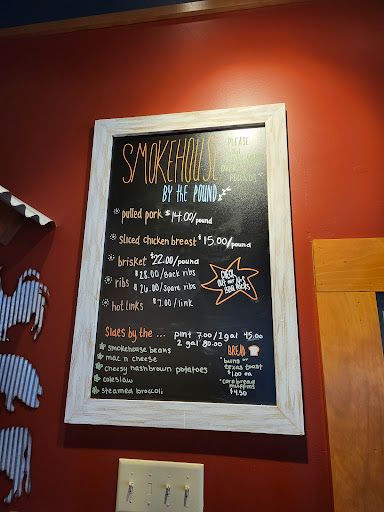 SMOKEHOUSE
BY the POUND
PLEASE
POUNDS
pulled pork $14.00/pound
sliced chicken breast $15.00/pound
brisket $22.00/pound
ribs $28.00/Back ribs
$26.00/spare ribs
hot links $7.00/link
CHECK
out our
Sides by the ... pint 7.00/1 gal 45.00
2 gal 80.00
smokehouse beans
mac n cheese
cheesy hashbrown potatoes
coleslaw
steamed broccoli
BREAD
buns or
texas toast
$1.00 ea
cornbread
muffins
$4.50